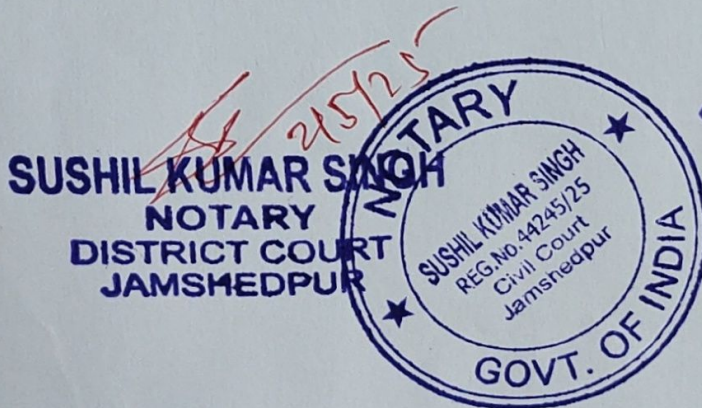 21/5/25
SUSHIL KUMAR SINGH
NOTARY
DISTRICT COURT
JAMSHEDPUR
NOTARY
SUSHIL KUMAR SINGH
REG.No.44245/25
Civil Court
Jamshedpur
GOVT. OF INDIA